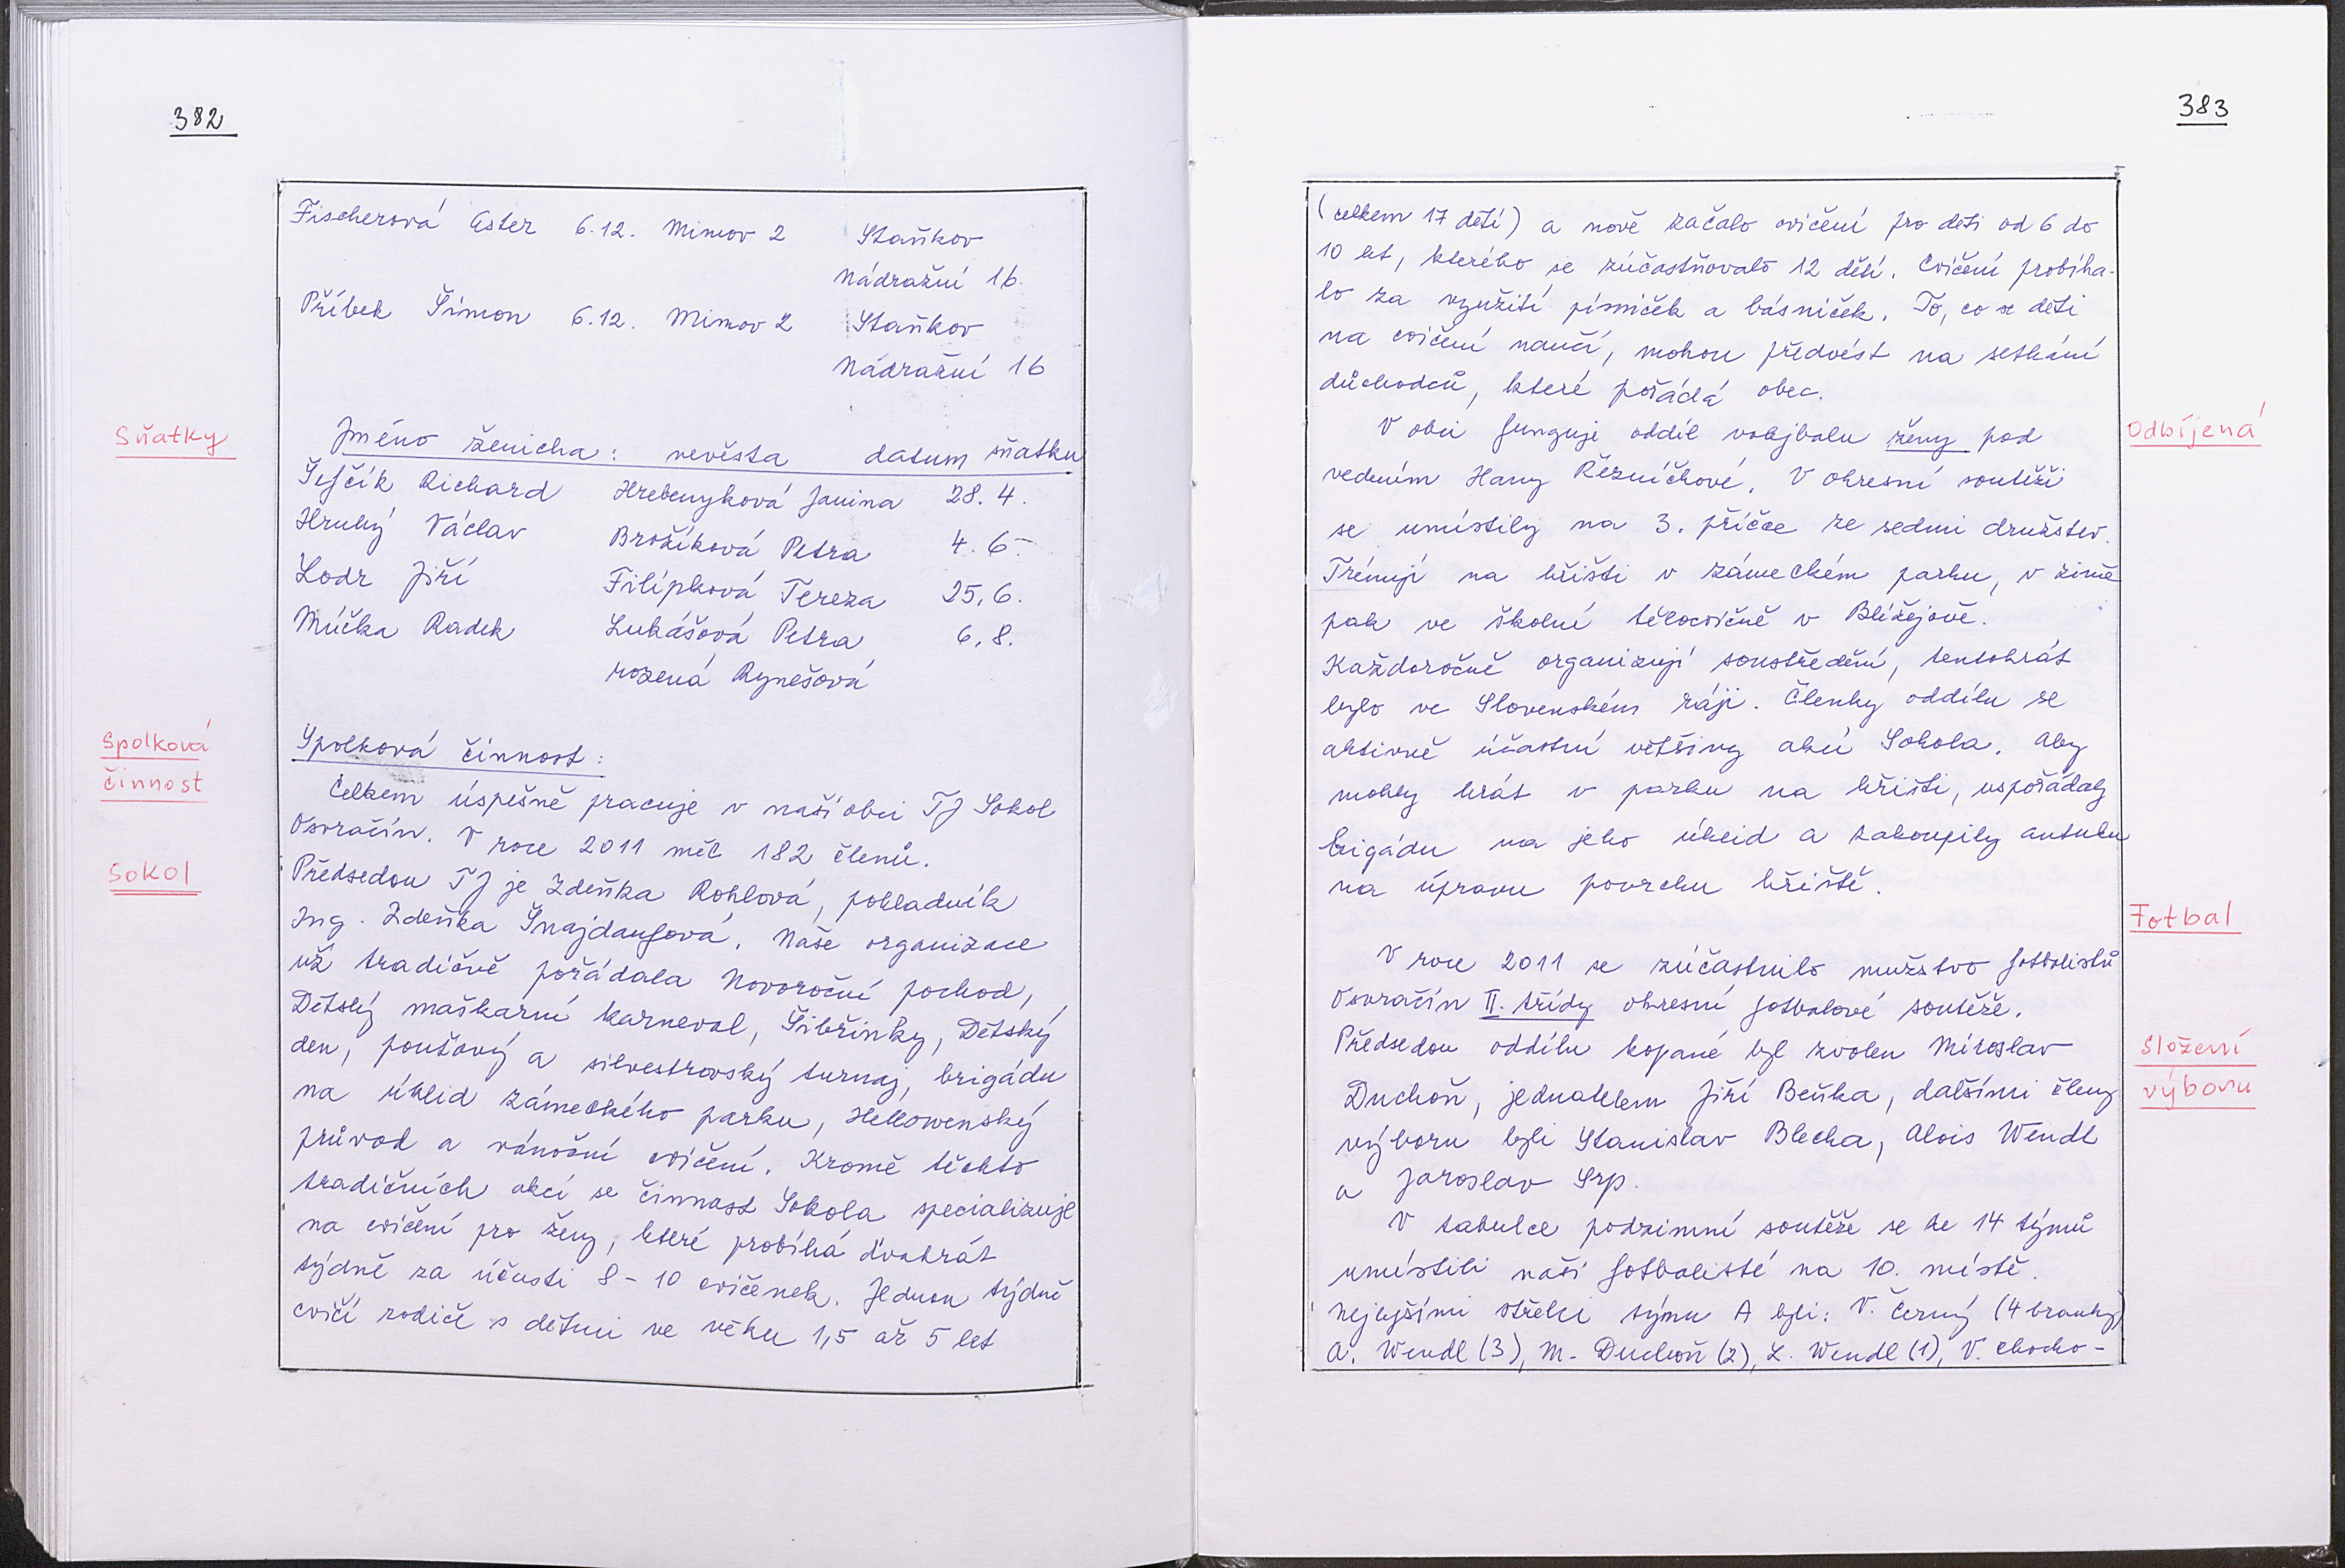 382
Fischerová Ester 6.12. Mimov 2 Staňkov
Nádražní 16
Příbek Šimon 6.12. Mimov 2 Staňkov
Nádražní 16
Sňatky
Jméno ženicha: nevěsta datum sňatku
Šefčík Richard Hrebenyková Janina 28.4.
Hrubý Václav Brožíková Petra 4.6.
Lodr Jiří Filípková Tereza 25.6.
Míčka Radek Lukášová Petra 6.8.
rozená Rynešová
Spolková
činnost
Spolková činnost:
Celkem úspěšně pracuje v naší obci TJ Sokol
Osvračín. V roce 2011 měl 182 členů.
Sokol
Předsedou TJ je Zdeňka Rohlová, pokladník
Ing. Zdeňka Šnajdaufová. Naše organizace
už tradičně pořádala Novoroční pochod,
Dětský maškarní karneval, Šibřinky, Dětský
den, pouťový a silvestrovský turnaj, brigádu
na úklid zámeckého parku, Hellowenský
průvod a vánoční cvičení. Kromě těchto
tradičních akcí se činnost Sokola specializuje
na cvičení pro ženy, které probíhá dvakrát
týdně za účasti 8-10 cvičenek. Jednou týdně
cvičí rodiče s dětmi ve věku 1,5 až 5 let
383
(celkem 17 dětí) a nově začalo cvičení pro děti od 6 do
10 let, kterého se zúčastňovalo 12 dětí. Cvičení probíha-
lo za využití písniček a básniček. To, co se děti
na cvičení naučí, mohou předvést na setkání
důchodců, které pořádá obec.
Odbíjená
V obci funguje oddíl volejbalu ženy pod
vedením Hany Řezníčkové. V okresní soutěži
se umístily na 3. příčce ze sedmi družstev.
Trénují na hřišti v zámeckém parku, v zimě
pak ve školní tělocvičně v Blížejově.
Každoročně organizují soustředění, tentokrát
bylo ve Slovenském ráji. Členky oddílu se
aktivně účastní většiny akcí Sokola. Aby
mohly hrát v parku na hřišti, uspořádaly
brigádu na jeho úklid a zakoupily antuku
na úpravu povrchu hřiště.
Fotbal
V roce 2011 se zúčastnilo mužstvo fotbalistů
Osvračín II. třídy okresní fotbalové soutěže.
Složení
výboru
Předsedou oddílu kopané byl zvolen Miroslav
Duchoň, jednatelem Jiří Beňka, dalšími členy
výboru byli Stanislav Blecha, Alois Wendl
a Jaroslav Srp.
V tabulce podzimní soutěže se ze 14 týmů
umístili naši fotbalisté na 10. místě.
Nejlepšími střelci týmu A byli: V. Černý (4 branky)
A. Wendl (3), M. Duchoň (2), L. Wendl (1), V. Chocho-